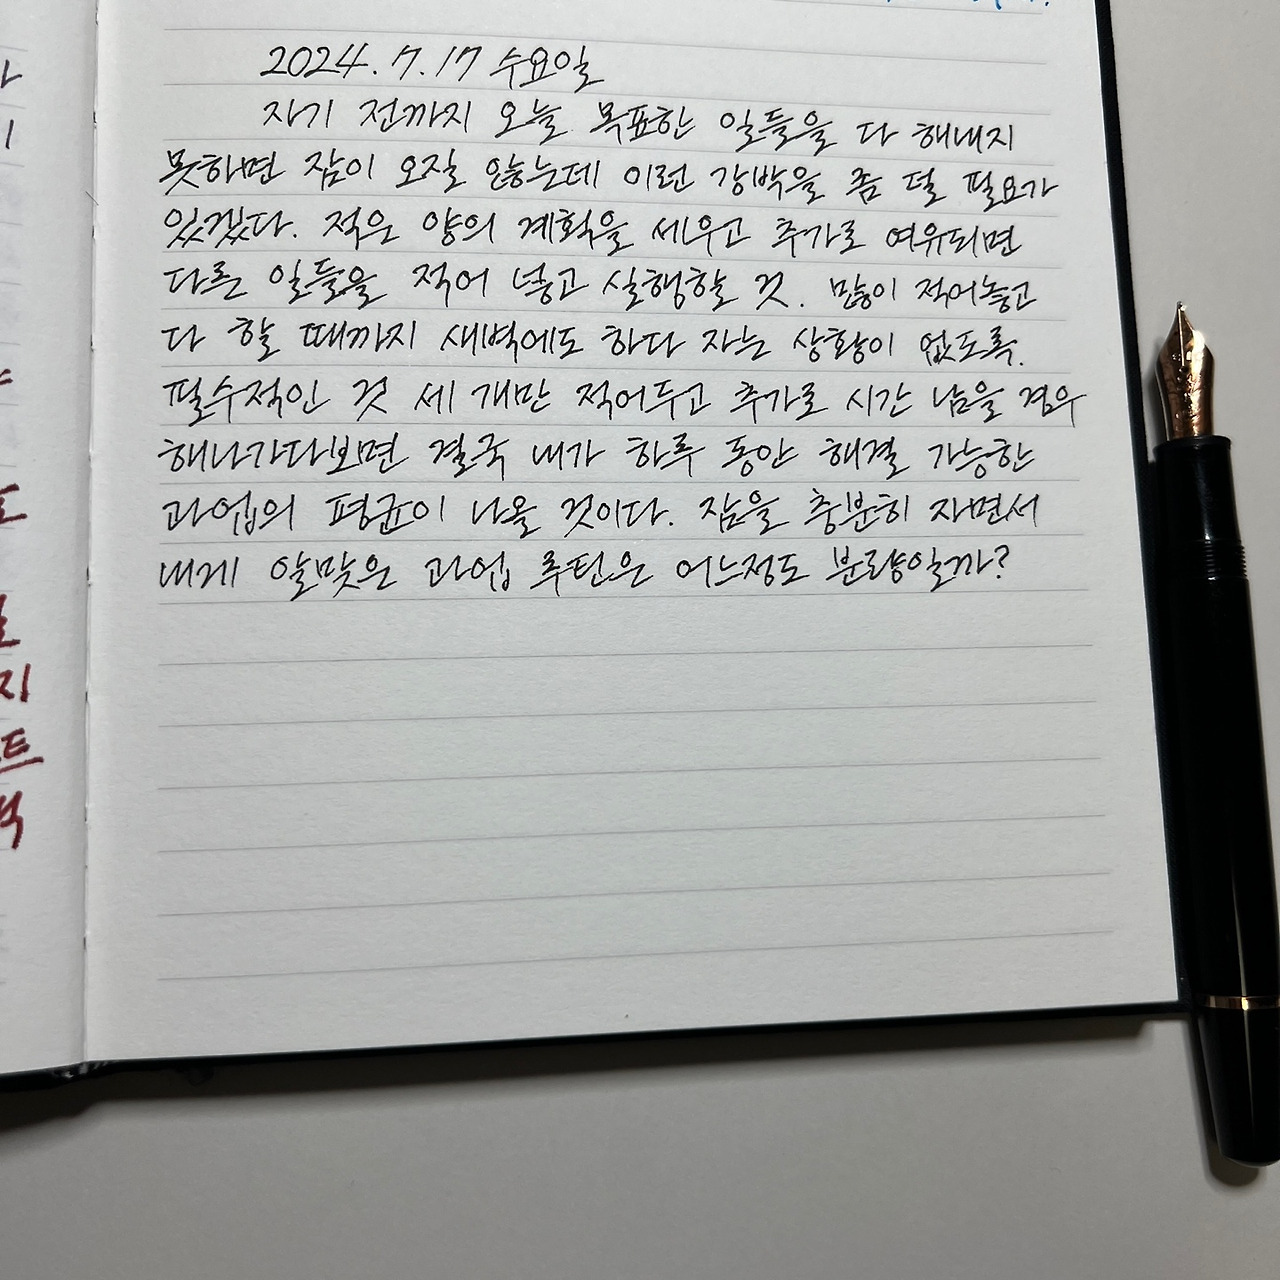 2024.7.17 수요일
자기 전까지 오늘 목표한 일들을 다 해내지
못하면 잠이 오질 않는데 이런 강박을 좀 덜 필요가
있겠다. 적은 양의 계획을 세우고 추가로 여유되면
다른 일들을 적어 넣고 실행할 것. 많이 적어놓고
다 할 때까지 새벽에도 하다 자는 상황이 없도록.
필수적인 것 세 개만 적어두고 추가로 시간 남을 경우
해나가다보면 결국 내가 하루 동안 해결 가능한
과업의 평균이 나올 것이다. 잠을 충분히 자면서
내게 알맞은 과업 루틴은 어느정도 분량일까?